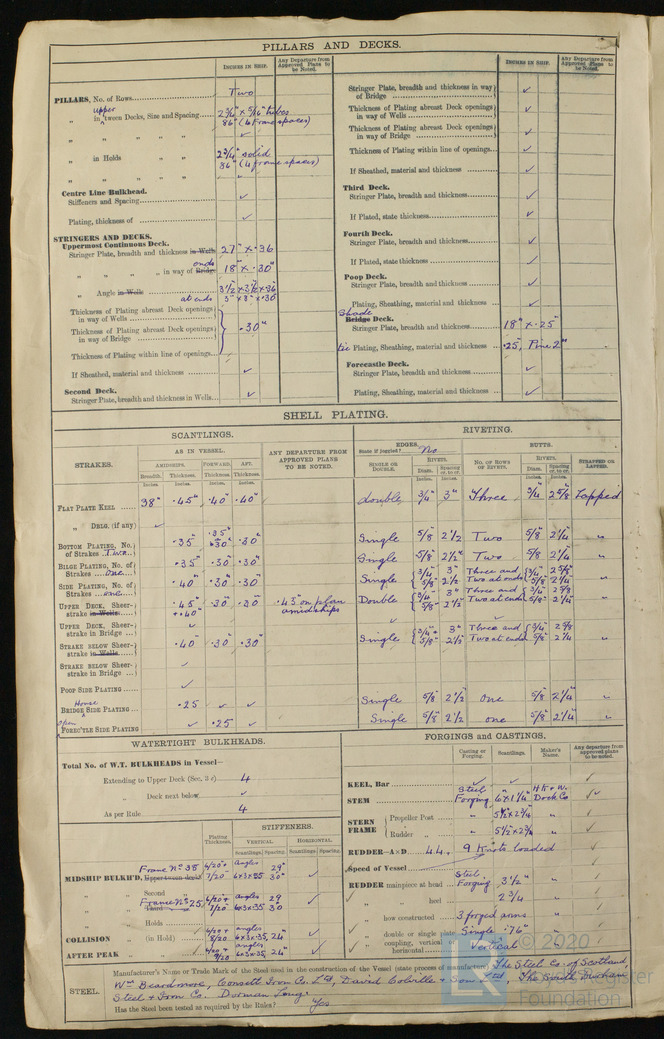 PILLARS AND DECKS.
DECKES IN SHIP.
Any Departure from Approved Plans to be Noted.
PILLARS, No. of Rows Two
" in upper 'tween Decks, Size and Spacing 2¾" x 5/16" tubes
86" (4 Frame spaces)
" " " "
" in Holds " " 2¾" solid
86" (4 frame spaces)
" " " "
Centre Line Bulkhead.
Stiffeners and Spacing ✓
Plating, thickness of ✓
STRINGERS AND DECKS.
Uppermost Continuous Deck.
Stringer Plate, breadth and thickness in Wells 27" x .36
" " " " in way of Bridge ends 18" x .30"
" Angle in Wells 3½ x 3½ x .36
at ends 3" x 3" x .30
Thickness of Plating abreast Deck openings in way of Wells
Thickness of Plating abreast Deck openings in way of Bridge .30"
Thickness of Plating within line of openings
If Sheathed, material and thickness ✓
Second Deck.
Stringer Plate, breadth and thickness in Wells ✓
DECKS IN SHIP.
Any Departure from Approved Plans to be Noted.
Stringer Plate, breadth and thickness in way of Bridge ✓
Thickness of Plating abreast Deck openings in way of Wells ✓
Thickness of Plating abreast Deck openings in way of Bridge ✓
Thickness of Plating within line of openings ✓
If Sheathed, material and thickness ✓
Third Deck.
Stringer Plate, breadth and thickness ✓
If Plated, state thickness ✓
Fourth Deck.
Stringer Plate, breadth and thickness ✓
If Plated, state thickness ✓
Poop Deck.
Stringer Plate, breadth and thickness ✓
Plating, Sheathing, material and thickness ✓
Shade
Bridge Deck.
Stringer Plate, breadth and thickness 18" x .25"
tie Plating, Sheathing, material and thickness .25, Pine 2"
Forecastle Deck.
Stringer Plate, breadth and thickness ✓
Plating, Sheathing, material and thickness ✓
SHELL PLATING.
SCANTLINGS.
RIVETING.
STRAKES.
AS IN VESSEL.
AMIDSHIPS. FORWARD. AFT.
Breadth. Thickness. Thickness. Thickness.
Inches. Inches. Inches. Inches.
ANY DEPARTURE FROM APPROVED PLANS TO BE NOTED.
EDGES.
State if joggled? No
SINGLE OR DOUBLE.
RIVETS.
Diam. Spacing cr. to cr.
BUTTS.
NO. OF ROWS OF RIVETS.
RIVETS.
Diam. Spacing cr. to cr.
STRAPPED OR LAPPED.
FLAT PLATE KEEL 38" .45" .40" .40" double ¾" 3" Three ¾" 2⅝ Lapped
" DBLG. (if any) ✓
BOTTOM PLATING, No. of Strakes Two .35" .35" .30" .30" Single ⅝ 2½ Two ⅝ 2¼ "
BILGE PLATING, No. of Strakes One .35" .30" .30" Single ⅝ 2½" Two ⅝ 2¼ "
SIDE PLATING, No. of Strakes one .40" .30" .30" Single ¾" 3" Three and ¾" 2⅝
⅝" 2½ Two at ends ⅝" 2¼ "
UPPER DECK, Sheerstrake in Wells .45" .30" .30 .43" on plan amidships Double ¾" 3" Three and ¾" 2⅝
+.40" ⅝" 2½" Two at ends ⅝" 2¼" "
UPPER DECK, Sheerstrake in Bridge ✓
STRAKE BELOW Sheerstrake in Wells .40" .30" .30" Single ¾" 3" Three and ¾" 2⅝
⅝" 2½" Two at ends ⅝" 2¼ "
STRAKE BELOW Sheerstrake in Bridge ✓
POOP SIDE PLATING ✓
House
BRIDGE SIDE PLATING .25 ✓ ✓ Single ⅝ 2½ One ⅝ 2¼" "
Open
FOREC'TLE SIDE PLATING ✓ .25" ✓ Single ⅝" 2½ one ⅝" 2¼" "
WATERTIGHT BULKHEADS.
Total No. of W.T. BULKHEADS in Vessel—
Extending to Upper Deck (Sec. 3 c) 4
" Deck next below ✓
As per Rule 4
Plating Thickness.
STIFFENERS.
VERTICAL. HORIZONTAL.
Scantlings. Spacing. Scantlings. Spacing.
Frame No 38 6/20 + angles 29"
MIDSHIP BULKH'D, Upper tween decks 7/20 6x3x.35 30" ✓
" " Second "
Frame No 25 6/20 + angles 29
" " Third " 7/20 6x3x.35 30 ✓
" " Holds
COLLISION " (in Hold) 6/20 + angles
8/20 6x3x.35 24" ✓
AFTER PEAK " " 6/20 + angles
9/20 6x3x.35, 24" ✓
FORGINGS and CASTINGS.
Casting or Forging. Scantlings. Maker's Name. Any departure from approved plans to be noted.
KEEL, Bar ✓ ✓ ✓
STEM Steel Forging 6 x 1¼" H.K. & W. Dock Co ✓
STERN FRAME { Propeller Post " 5½" x 2¾" " ✓
Rudder " " 5½" x 2¾ " ✓
RUDDER—A×D 44. 9 Knots loaded ✓
Speed of Vessel
RUDDER mainpiece at head Steel Forging 3½" " ✓
" " heel " 2¾ " ✓
" how constructed 3 forged arms " ✓
" double or single plate Single .76" ✓
" coupling, vertical or horizontal Vertical ✓
STEEL.
Manufacturer's Name or Trade Mark of the Steel used in the construction of the Vessel (state process of manufacture) The Steel Co. of Scotland
Wm Beardmore, Consett Iron Co. Ltd, David Colville & Sons Ltd, The South Durham
Steel & Iron Co. Dorman Long.
Has the Steel been tested as required by the Rules? Yes
© 2020
LR
Lloyd's Register
Foundation